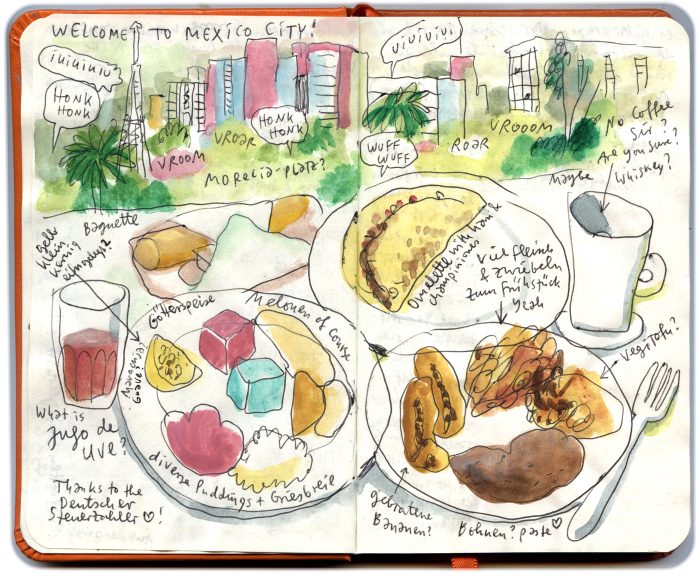 WELCOME TO MEXICO CITY!
iuiuiuiu
HONK
HONK
VROOM
VROAR
HONK
HONK
MORELIA-PLATZ?
uiuiuiui
WUFF
WUFF
ROAR
VROOOM
No Coffee
Sir?
Are you sure?
Maybe
Whiskey?
Baguette
Gelb
Klein
körnig
eingelegt?
Götterspeise
Melonen of Course
Maracuja?
Guave?
What is
Jugo de
UVE?
Thanks to the
Deutscher
Steuerzahler ♡!
diverse Puddings + Griesbreie
Omelette mit
Champignons
Viel Fleisch
& Zwiebeln
zum Frühstück
Yeah
VegiTofu?
gebratene
Bananen?
Bohnen? paste ♡